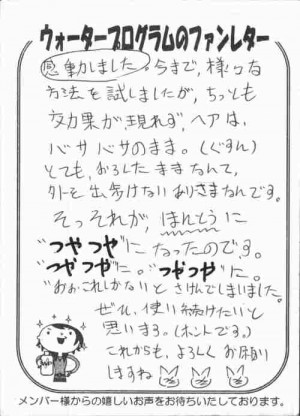 ウォータープログラムのファンレター
感動しました。今まで、様々な
方法を試しましたが、ちっとも
効果が、現れず、ヘアは、
バサバサのまま。(ぐすん)
とても、おろしたままなんて、
外を出歩けないありさまなんです。
そっそれが、ほんとうに
"つやつや"になったのです。
"つやつや"に。"つやつや"に。
"おぉこれしかないとさけんでしまいました。
ぜひ、使い続けたいと
思いまする。(ホントです。)
これからも、よろしくお願い
しますね
メンバー様からの嬉しいお声をお待ちいたしております。